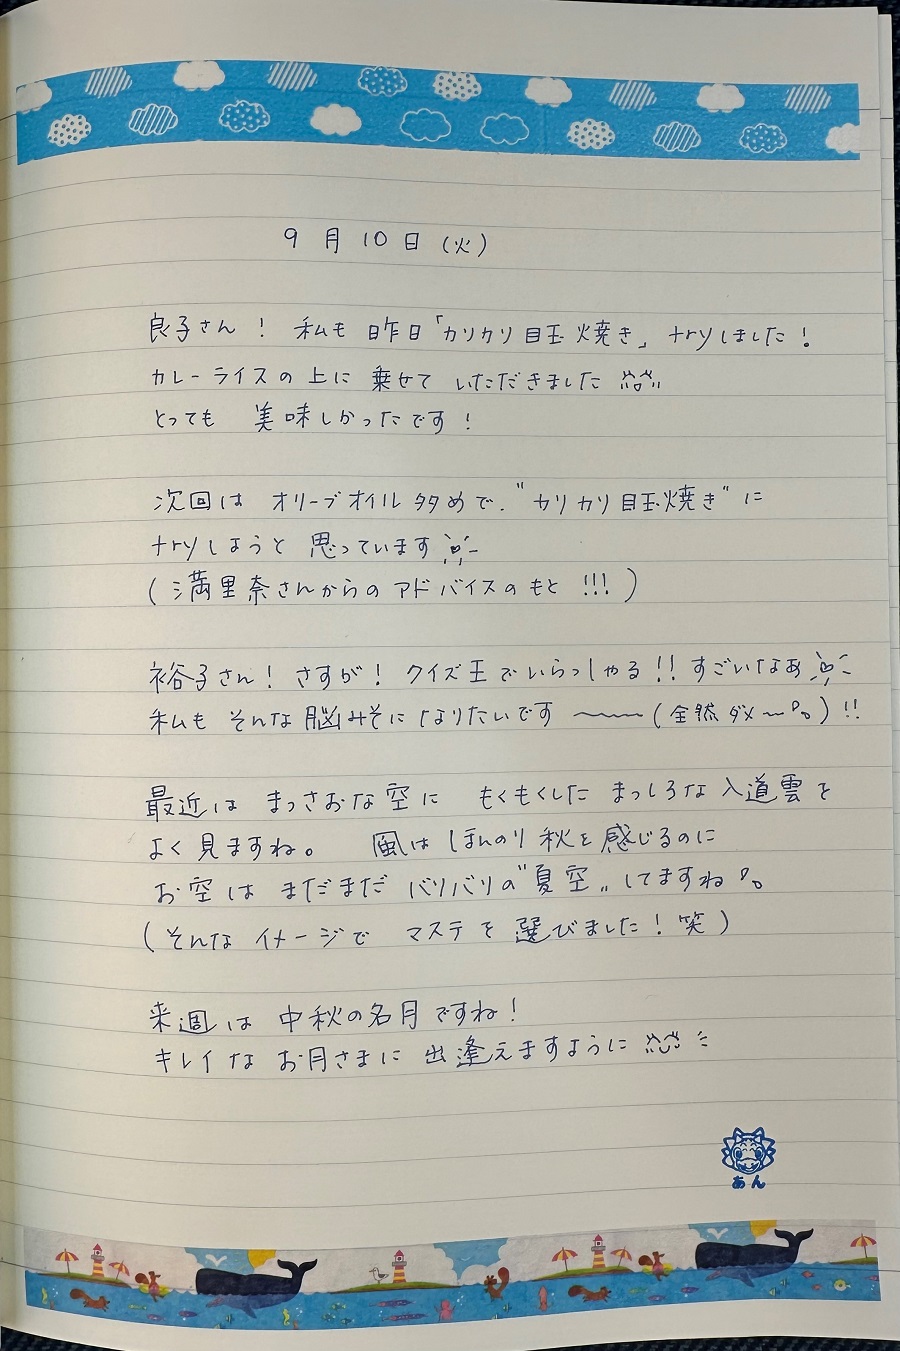 9月10日(火)
良子さん! 私も昨日「カリカリ目玉焼き」tryしました!
カレーライスの上に乗せていただきました
とっても 美味しかったです!
次回は オリーブオイル多めで、"カリカリ目玉焼き"に
tryしようと思っています
(満里奈さんからのアドバイスのもと!!!)
裕子さん! さすが! クイズ王でいらっしゃる!! すごいなあ
私も そんな脳みそになりたいです〜〜(全然ダメ〜)!!
最近は まっさおな空に もくもくした まっしろな入道雲を
よく見ますね。 風は ほんのり秋を感じるのに
お空は まだまだ バリバリの"夏空"してますね
(そんなイメージで マステを選びました! 笑)
来週は 中秋の名月ですね!
キレイな お月さまに 出逢えますように
あん